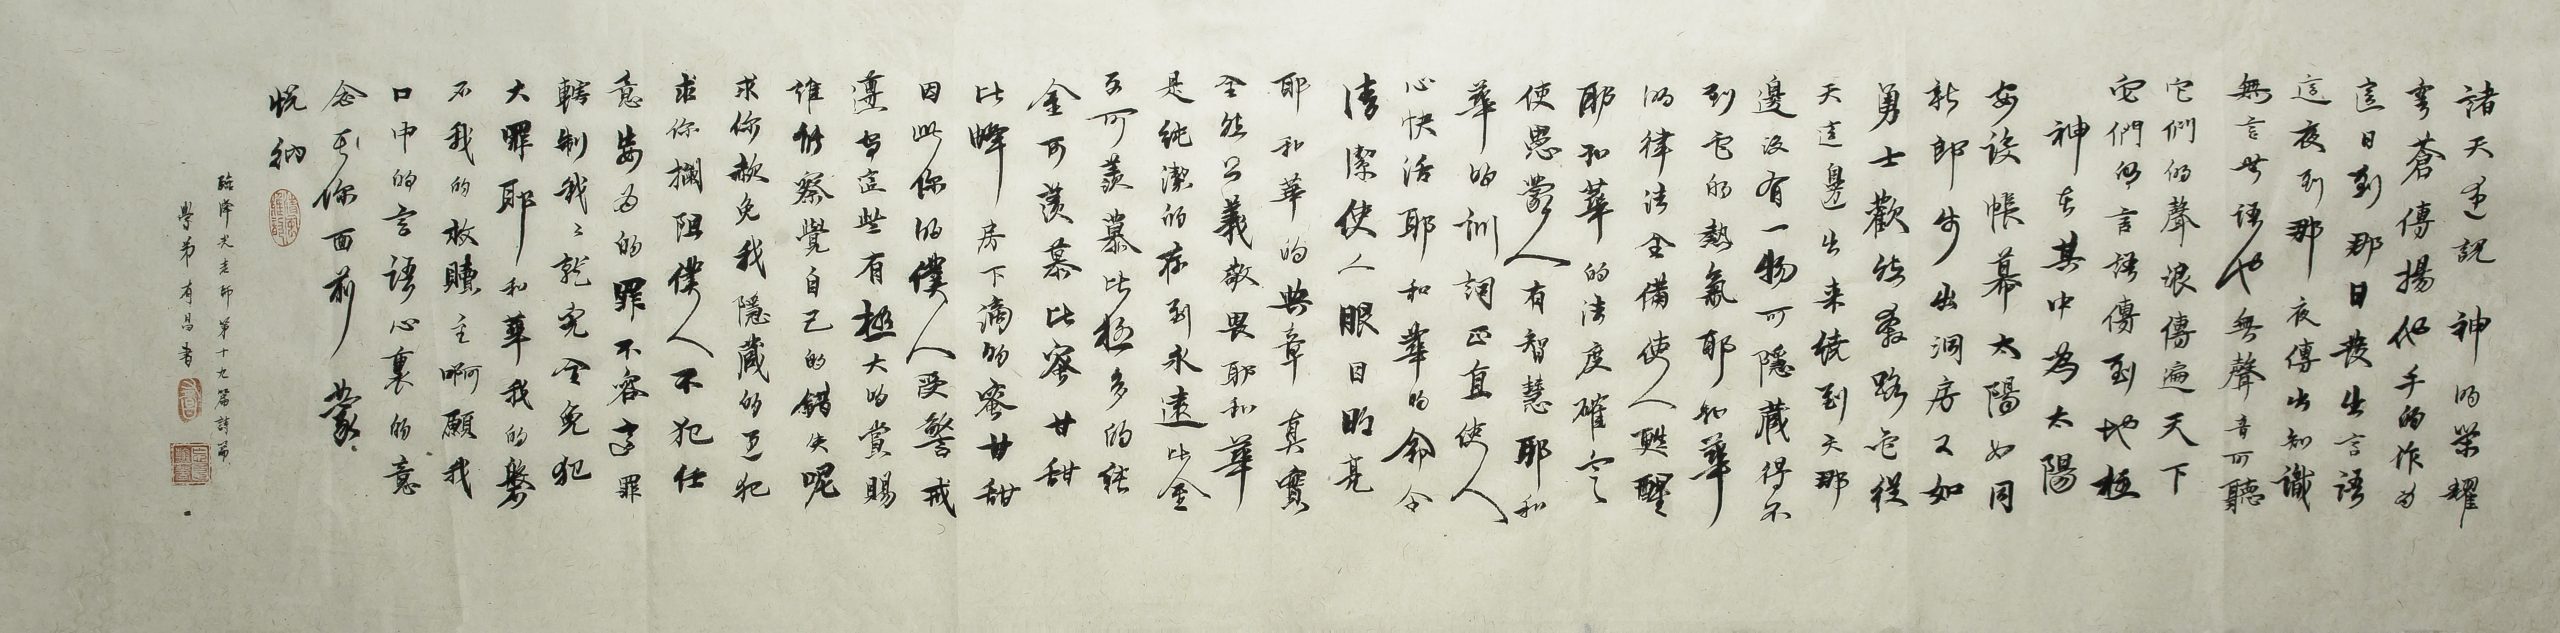 諸天述說 神的榮耀
穹蒼傳揚他手的作為
這日到那日發出言語
這夜到那夜傳出知識
無言無語也無聲音可聽
它們的聲浪傳遍天下
它們的言語傳到地極
神在其中為太陽
安設帳幕太陽如同
新郎步出洞房又如
勇士歡然奔路它從
天這邊出来繞到天那
邊沒有一物可隱藏得不
到它的熱氣耶和華
的律法全備使人甦醒
耶和華的法度確定
使愚蒙人有智慧耶和
華的訓詞正直使人
心快活耶和華的命令
清潔使人眼目明亮
耶和華的典章真實
全然公義敬畏耶和華
是純潔的存到永遠比金
子可羨慕比極多的純
金可羨慕比蜜甘甜
比蜂房下滴的蜜甘甜
因此你的僕人受警戒
遵守這些有極大的賞賜
誰能察覺自己的錯失呢
求你赦免我隱藏的過犯
求你攔阻僕人不犯任
意妄為的罪不容這罪
轄制我我就完全免犯
大罪耶和華我的磐
石我的救贖主啊願我
口中的言語心裏的意
念在你面前 蒙
悅納
臨澤光老師第十九篇詩篇
學弟有昌書